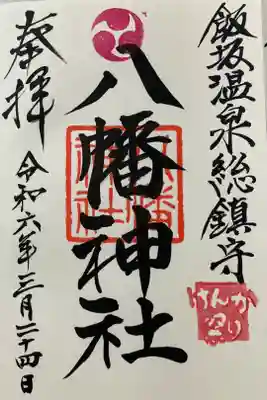 飯坂温泉総鎮守
けんか
祭り
八幡神社
奉拝
令和六年三月二十四日